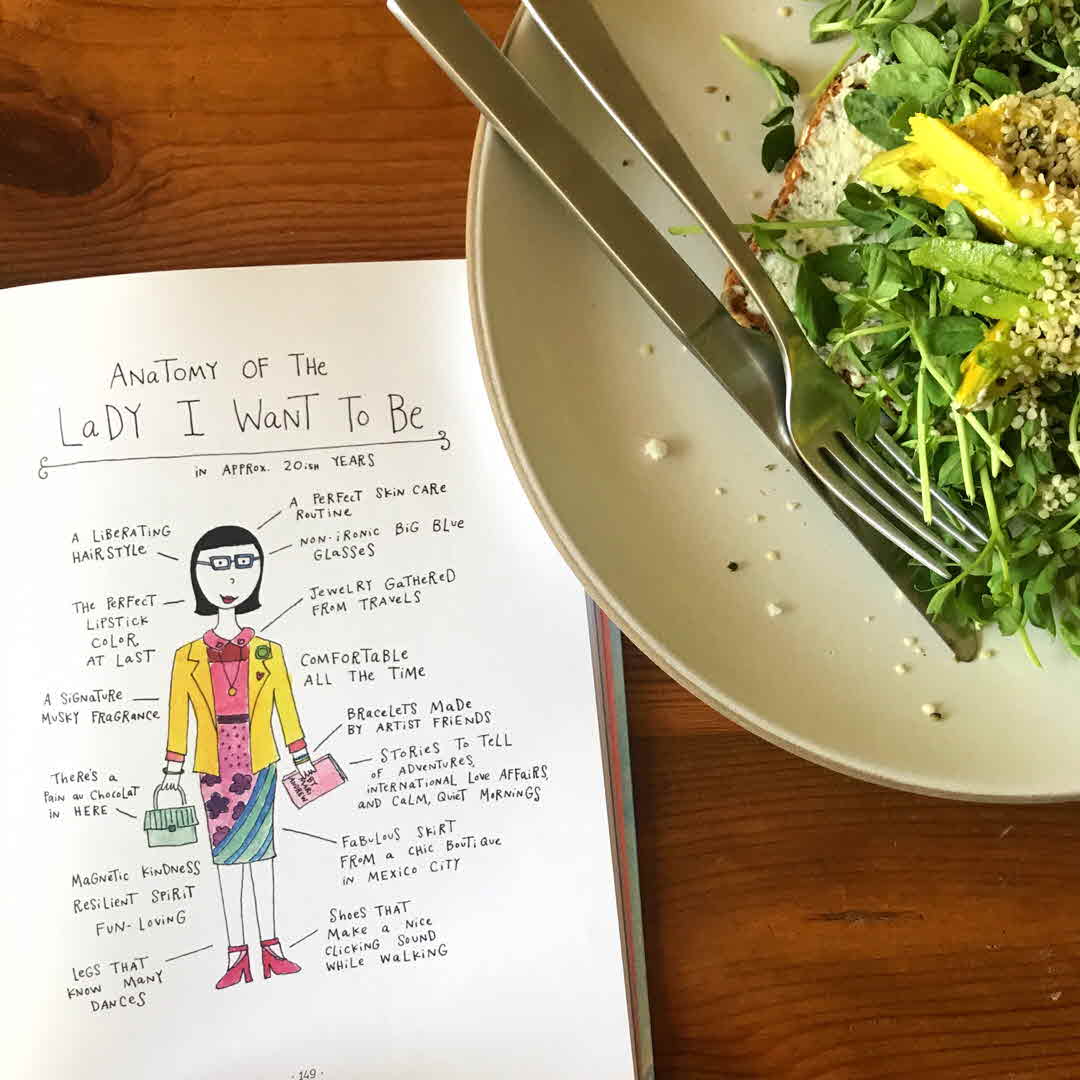 ANaTOMY OF THe
LaDY I WaNT To Be
iN APPROX. 20ish YEARS
A PeRFecT SKiN CaRe
ROUTiNe
A LiBeRaTiNG
HaiRSTYLe
NON-iRONiC BiG BLUe
GLaSSeS
JeWeLRY GaTHeReD
FROM TRaVeLS
THe PeRFecT
LiPSTiCK
COLOR
AT LaST
COMFORTaBLe
ALL THe TiMe
A SiGNaTURe
MUSKY FRaGRaNCe
BRaceLeTS MaDe
BY ARTiST FRieNDS
STORieS To TeLL
OF ADVeNTUReS,
iNTeRNaTiONaL LoVe AFFaiRS,
AND CaLM, QUieT MORNiNGS
THeRe'S a
Pain au CHocoLaT
iN HeRe
FaBULOUS SKiRT
FROM a CHiC BOUTiQUe
iN MEXiCO CiTY
MaGNeTiC KiNDNeSS
ReSiLieNT SPiRiT
FUN-LOViNG
SHOeS THaT
MaKe a NiCe
CLiCKiNG SOUND
WHiLe WaLKiNG
LeGS THaT
KNOW MaNY
DaNCeS
· 149 ·